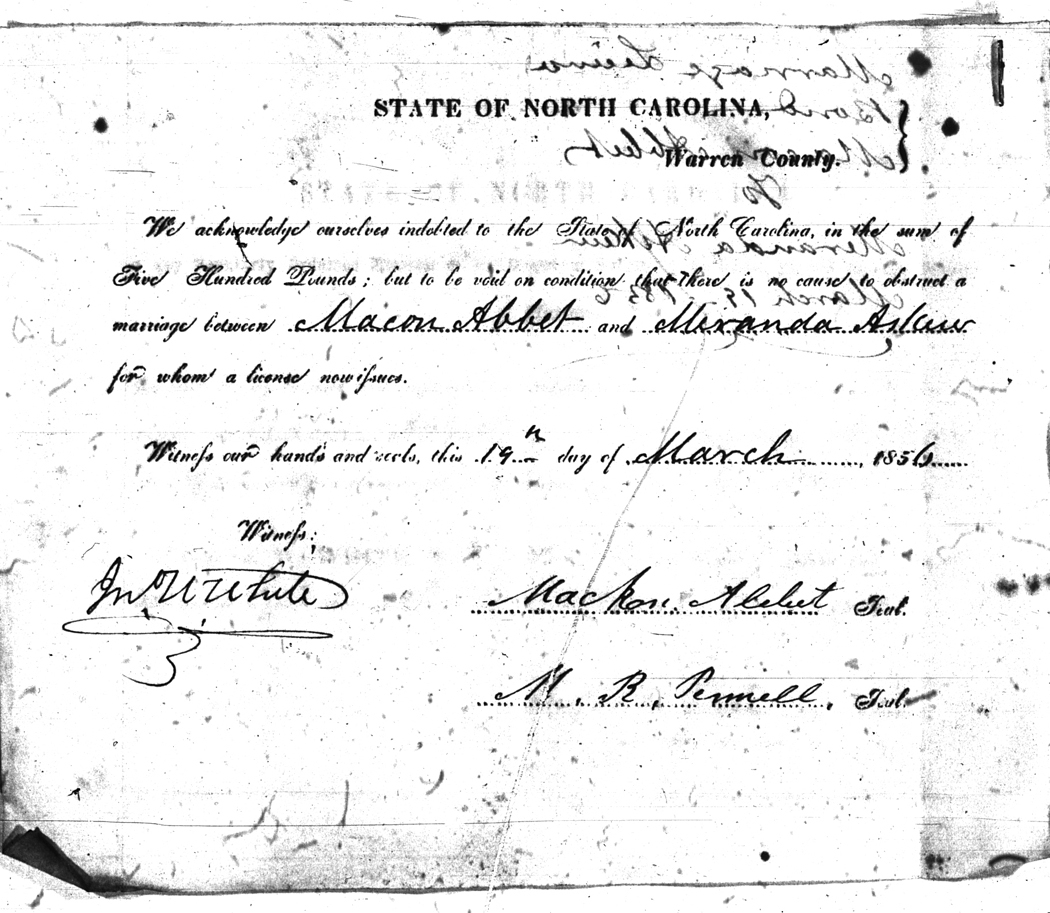 STATE OF NORTH CAROLINA,
Warren County.
We acknowledge ourselves indebted to the State of North Carolina, in the sum of
Five Hundred Pounds; but to be void on condition that there is no cause to obstruct a
marriage between Macon Abbet and Miranda Askew
for whom a license now issues.
Witness our hands and seals, this 19th day of March, 1856
Witness:
Jno W White
Mackon Abbet Seal.
M. R. Pennell, Seal.
Marriage
Bond
Macon Abbet
To
Miranda Askew
March 19 1856